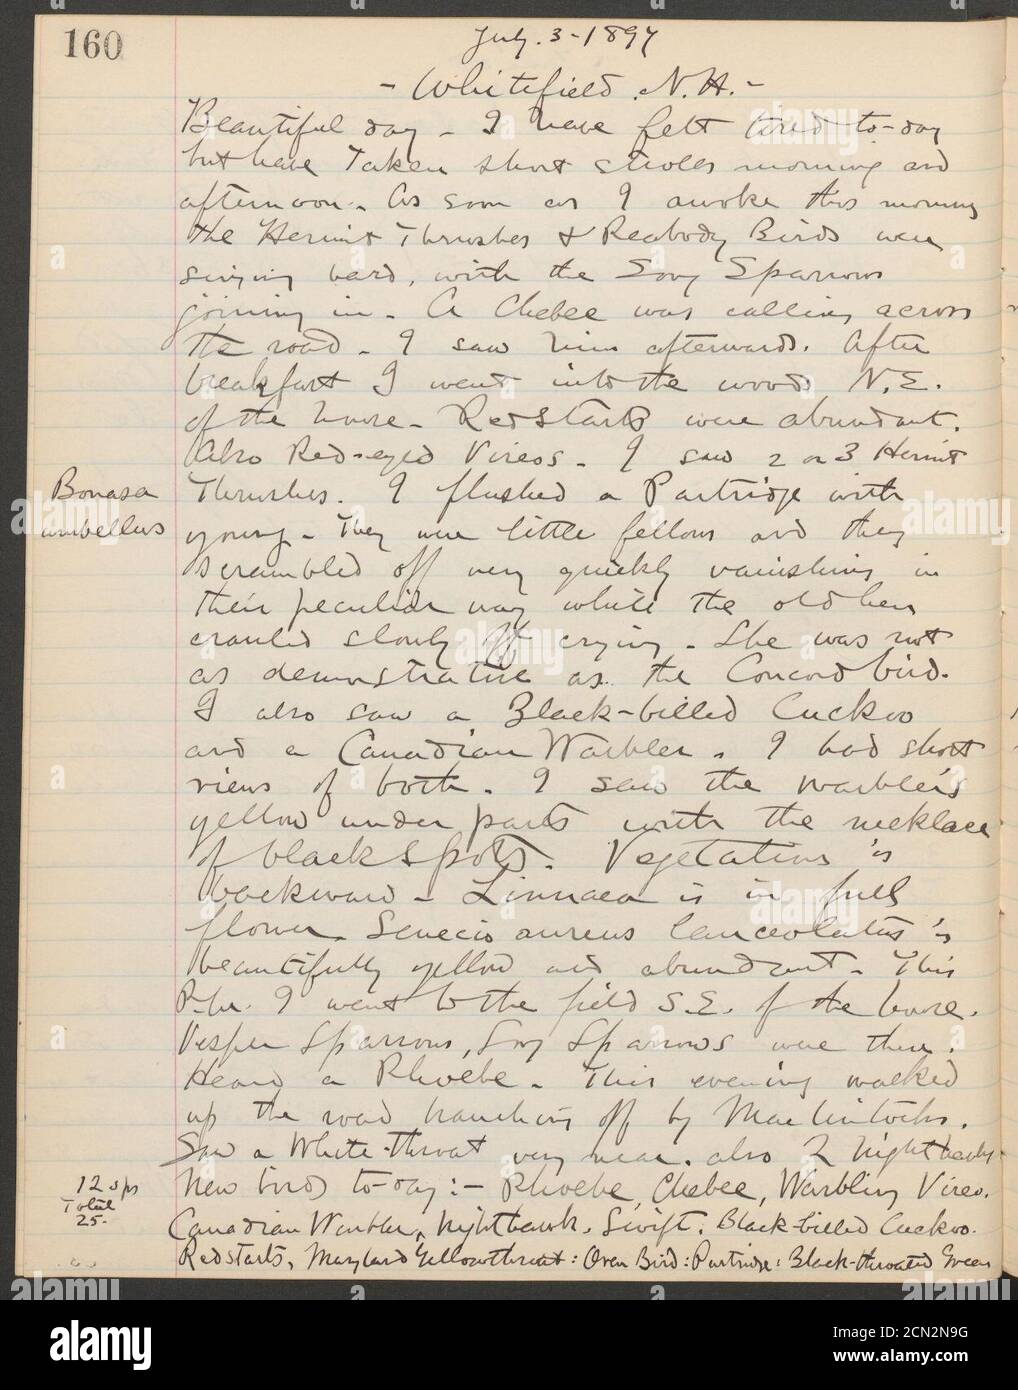 160
July. 3 - 1897
- Whitefield. N.H. -
Beautiful day - I have felt tired to-day
but have taken short strolls morning and
afternoon. As soon as I awoke this morning
the Hermit Thrushes & Peabody Birds were
singing hard, with the Song Sparrows
joining in. A Chebec was calling across
the road. I saw him afterwards. After
breakfast I went into the woods N.E.
of the house. Redstarts were abundant.
Also Red-eyed Vireos. I saw 2 or 3 Hermit
Bonasa
umbellus
Thrushes. I flushed a Partridge with
young. They were little fellows and they
scrambled off very quickly vanishing in
their peculiar way while the old hen
crawled slowly off crying. She was not
as demonstrative as the Concord bird.
I also saw a Black-billed Cuckoo
and a Canadian Warbler. I had short
views of both. I saw the warbler's
yellow under parts with the necklace
of black spots. Vegetation is
backward - Linnaea is in full
flower. Senecio aureus lanceolatus is
beautifully yellow and abundant. This
P.M. I went to the field S.E. of the house.
Vesper Sparrows, Song Sparrows were there.
Heard a Phoebe. This evening walked
up the road branching off by
Saw a White-throat very near. also 2 Nighthawks
12 sps
Total
25.
New birds to-day :- Phoebe, Chebec, Warbling Vireo.
Canadian Warbler, Nighthawk. Swift. Black-billed Cuckoo.
Redstarts, Maryland Yellowthroat: Oven Bird: Partridge: Black-throated Green
alamy
2CN2N9G
www.alamy.com